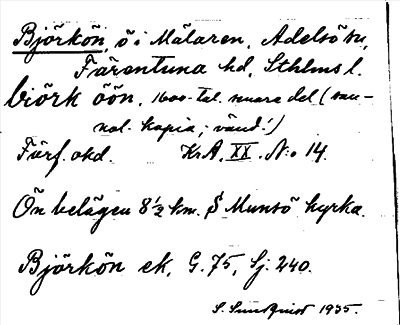 Björkön, ö i Mälaren, Adelsö sn,
Färentuna hd, Sthlms l.
biörk öön, 1600-tal. senare del (san-
nol. kopia; vänd!)
Förf. okd. KrA, XX. N:o 14.
Ön belägen 8½ km. S Munsö kyrka.
Björkön ek, G. 75, Sj. 240.
S. Sundqvist 1935.